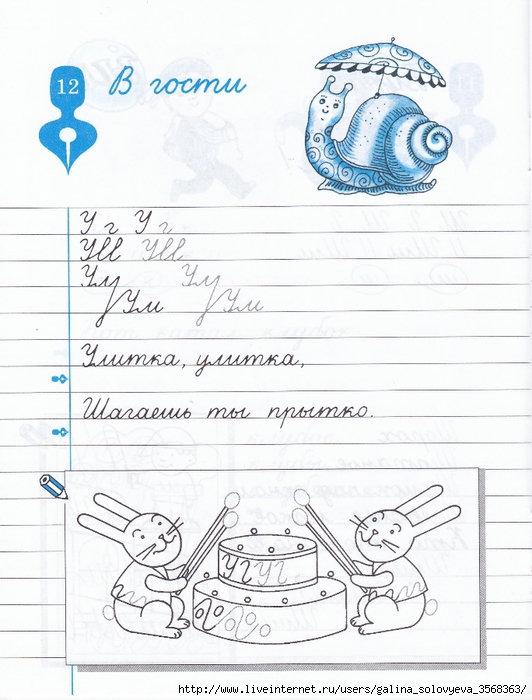 12
В гости
У г У г
Ull Ull
Ум Ум
Ум Ум
Улитка, улитка,
Шагаешь ты прытко.
Уг Уг
http://www.liveinternet.ru/users/galina_solovyeva_3568363/